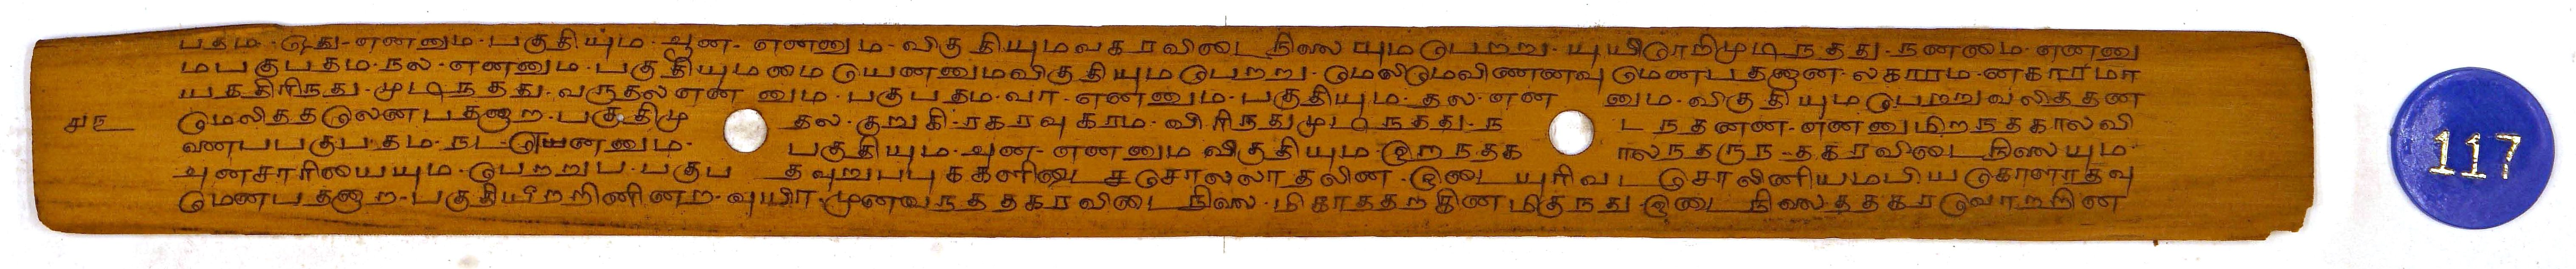 பதம - ஓது - எனனும - பகுதியும - ஆன - எனனும - விகுதியுமவகரவிடைநிலையுமபெறறு - யுயிரொறிமுடிநதது - நனமை - எனனு
மபகுபதம - நல - எனனும - பகுதியுமமையெனனுமவிகுதியுமபெறறு - மெலிமெவிணனவு மெனபதனான - லகாரம - னகாரமா
யததிரிநது - முடிநதது - வருதல எனனும - பகுபதம - வா - எனனும - பகுதியும - தல - எனனும - விகுதியுமபெறறுவலிததன
மெலிததலெனபதனாற - பகுதிமுதல - குறுகி - ரகரவுகரம - விரிநதுமுடிநதது - நடநதனன - எனனுமிறநதகாலவி
னைபபகுபதம - நட - யெனனும - பகுதியும - அன - எனனும விகுதியும - இறநதகாலநதருந - தகரவிடைநிலையும
அனசாரியையும - பெறறுப - பகுபதவுறுபபுககளிடைசசொலலாதலின - இடையுரிவடசொலினியமபியகொளாதவு
மெனபதனாற - பகுதியீறறினினற - வுயிர - முனவநத தகரவிடைநிலை - மிகாததறகினமிகுநது இடைநிலைததகரவொறறின
117